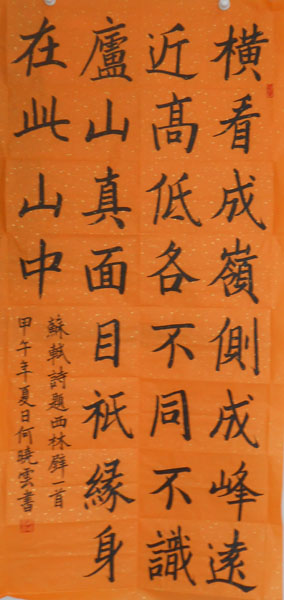 橫看成嶺側成峰遠
近高低各不同不識
廬山真面目祇緣身
在此山中
蘇軾詩題西林壁一首
甲午年夏日何曉雲書